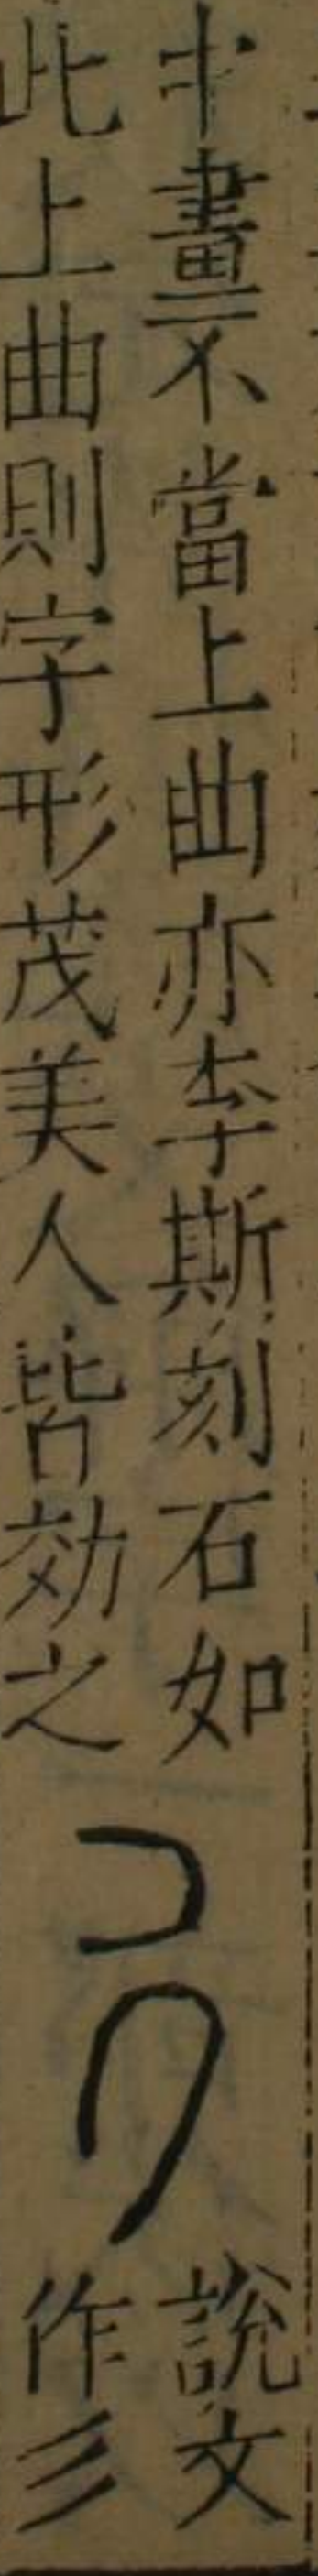 中畫不當上曲亦李斯刻石如
此上曲則字形茂美人皆効之
說文
作彡